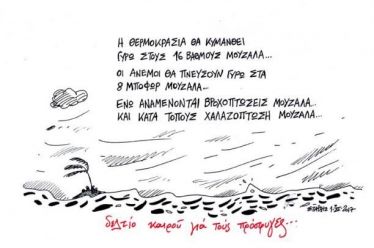 Η ΘΕΡΜΟΚΡΑΣΙΑ ΘΑ ΚΥΜΑΝΘΕΙ
ΓΥΡΩ ΣΤΟΥΣ 16 ΒΑΘΜΟΥΣ ΜΟΥΖΑΛΑ...
ΟΙ ΑΝΕΜΟΙ ΘΑ ΠΝΕΥΣΟΥΝ ΓΥΡΩ ΣΤΑ
8 ΜΠΟΦΟΡ ΜΟΥΖΑΛΑ...
ΕΝΩ ΑΝΑΜΕΝΟΝΤΑΙ ΒΡΟΧΟΠΤΩΣΕΙΣ ΜΟΥΖΑΛΑ...
ΚΑΙ ΚΑΤΑ ΤΟΠΟΥΣ ΧΑΛΑΖΟΠΤΩΣΗ ΜΟΥΖΑΛΑ...
δελτίο καιρού γιά τούς πρόσφυγες...